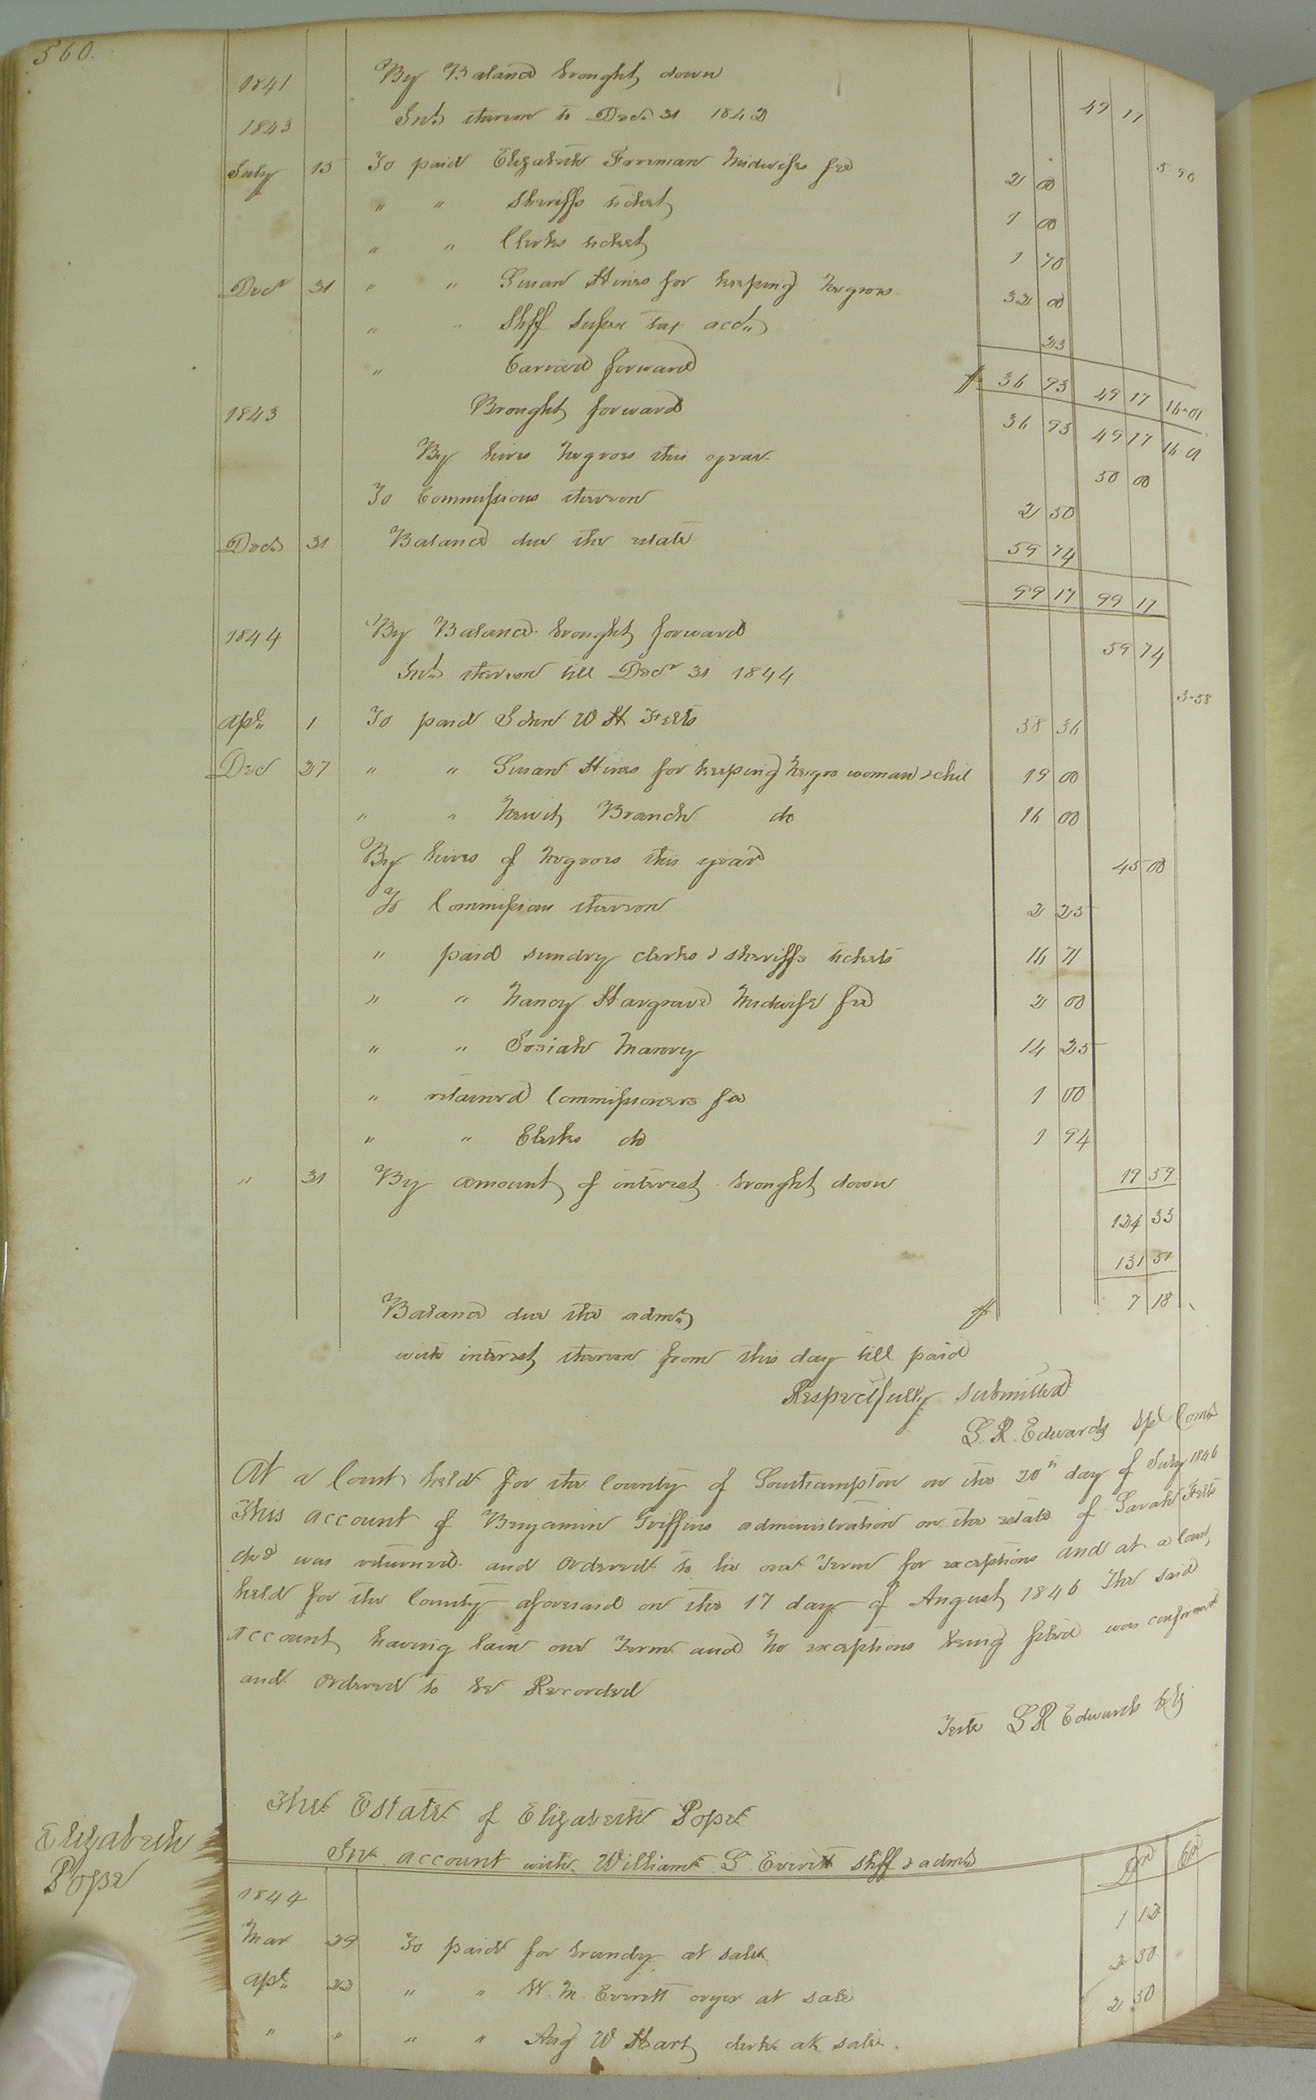 560.
1841 By Balance brought down 49 17
1843 Int. thereon to Decr 31 1842 5 90
July 15 To paid Elizabeth Freeman Midwifes fee 2 00
" " Sheriffs ticket 1 00
" " Clerks ticket 1 70
Decr 31 " " Susan Hines for keeping Negroes 32 00
" " Shff Super tax acct 23
" Carried forward $ 36 93 49 17 16-01
1843 Brought forward 36 93 49 17 16-01
By hires Negroes this year 50 00
To Commissions thereon 2 50
Decr 31 Balance due the estate 59 74
99 17 99 17
1844 By Balance brought forward 59 74
Int. thereon till Decr 31 1844 3-58
Apl. 1 To paid Edwn W H Felts 58 36
Dec 27 " " Susan Hines for keeping negro woman & chil 19 00
" " Newit Branch do 16 00
By hires of Negroes this year 45 00
To Commission thereon 2 25
" paid sundry clerks & sheriffs tickets 16 71
" " Nancy Hargrave Midwife fee 2 00
" " Josiah Manry 14 25
" retained Commissioners fee 1 00
" " Clerks do 1 94
" 31 By amount of interest brought down 19 59
124 33
131 51
Balance due the admr $ 7 18
with interest thereon from this day till paid
Respectfully submitted
L. R. Edwards Spl Comr
At a Court held for the County of Southampton on the 20th day of July 1846
This account of Benjamin Griffins administration on the estate of Sarah Felts
decd was returned and Ordered to lie one Term for exceptions and at a Court
held for the County aforesaid on the 17 day of August 1846 The said
account having lain one Term and No exceptions being filed was confirmed
and Ordered to be Recorded
Teste L R Edwards Clk
Elizabeth
Pope
The Estate of Elizabeth Pope
In account with William S Everitt Shff & admr Dr Cr
1844
Mar 29 To paid for brandy at sale 1 12
Apl. 23 " " W. M. Everitt cryer at sale 2 50
" " " " Aug W Hart clerk at sale. 2 50